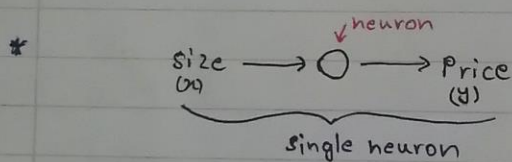 neuron
* size → ○ → Price
(x) (y)
single neuron